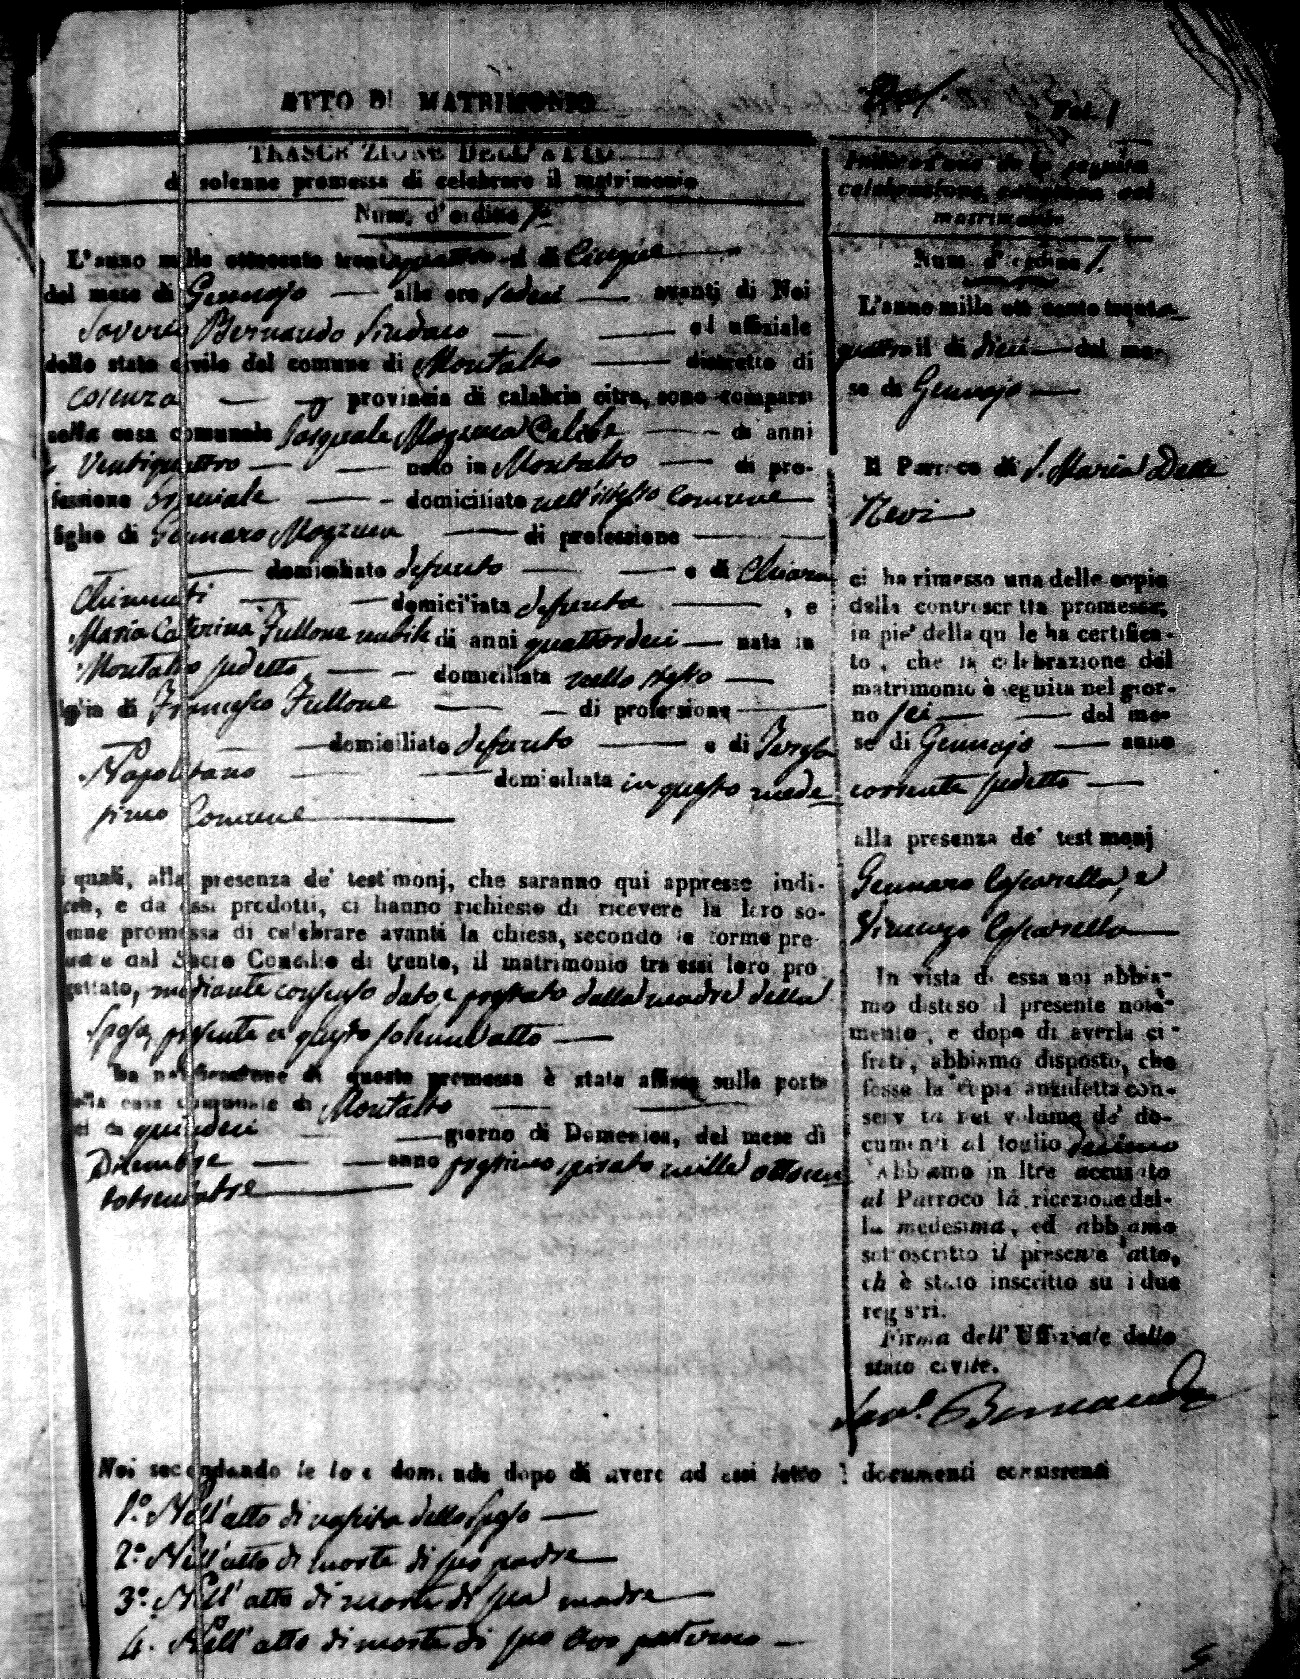 ATTO DI MATRIMONIO
TRASCRIZIONE DELL'ATTO
di solenne promessa di celebrare il matrimonio
Num. d'ordine 1.o
L'anno mille ottocento trentaquattro il di Cinque
del mese di Gennajo alle ore sedeci avanti di Noi
Saverio Bernardo Sindaco ed uffiziale
dello stato civile del comune di Montalto distretto di
Cosenza provincia di calabria citra, sono comparsi
nella casa comunale Pasquale di anni
Ventiquattro nato in Montalto di pro-
fessione Speziale domiciliato nell'istesso Comune
figlio di Gennaro di professione
domiciliato defunto e di Chiara
Chimenti domiciliata defunta , e
Maria Caterina Fullone nubile di anni quattordeci nata in
Montalto sudetto domiciliata nello stesso
figlia di Francesco Fullone di professione
domiciliato defunto e di
Napolitano domiciliata in questo mede
simo Comune
i quali, alla presenza de' testimonj, che saranno qui appresso indi-
cati, e da essi prodotti, ci hanno richiesto di ricevere la loro so-
lenne promessa di celebrare avanti la chiesa, secondo le forme pre
dal Sacro Concilio di trento, il matrimonio tra essi loro pro
gettato, mediante consenso dato e prestato dalla madre della
Sposa, presente a questo solenne atto
La notificazione di questa promessa è stata affissa sulla porta
della casa comunale di Montalto
quindeci giorno di Domenica, del mese di
Dicembre anno prossimo spirato mille ottocen
totrentatre
Noi secondando le loro domande dopo di avere ad essi letto i documenti consistenti
1.o Nell'atto di nascita dello Sposo
2.o Nell'atto di morte di suo padre
3.o Nell'atto di morte di sua madre
4. Nell'atto di morte di suo avo paterno
Fol. 1
Indicazione de la seguita
celebrazione, canonica del
matrimonio
Num. d'ordine 1.
L'anno mille ott cento trenta
quattro il di dieci del me-
se di Gennajo
Il Parroco di S. Maria della
Nevi
ci ha rimesso una delle copie
della controscritta promessa;
in pie' della quale ha certifica-
to, che la celebrazione del
matrimonio è seguita nel gior-
no sei del me-
se di Gennajo anno
corrente sudetto
alla presenza de' testimonj
Gennaro Cascarella, e
Vincenzo Cascarella
In vista di essa noi abbia-
mo disteso il presente nota-
mento, e dopo di averla ci-
frata, abbiamo disposto, che
fosse la copia anzidetta con-
servata nel volume de' do-
cumenti al foglio decimo
Abbiamo inoltre accusato
al Parroco la ricezione del-
la medesima, ed abbiamo
sottoscritto il presente atto,
ch è stato inscritto su i due
registri.
Firma dell'Uffiziale dello
stato civile.
Sav.o Bernardo